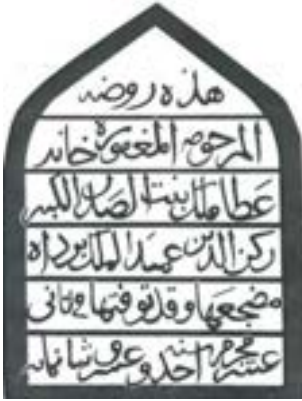 هذه روضه
المرحومه المغفوره خاند
عطا ملك بنت الصدر الكبير
ركن الدين عميد الملك برد الله
مضجعها وقد توفيتها في ثاني
عشر محرم سنه احدى وعشر وثمانمايه